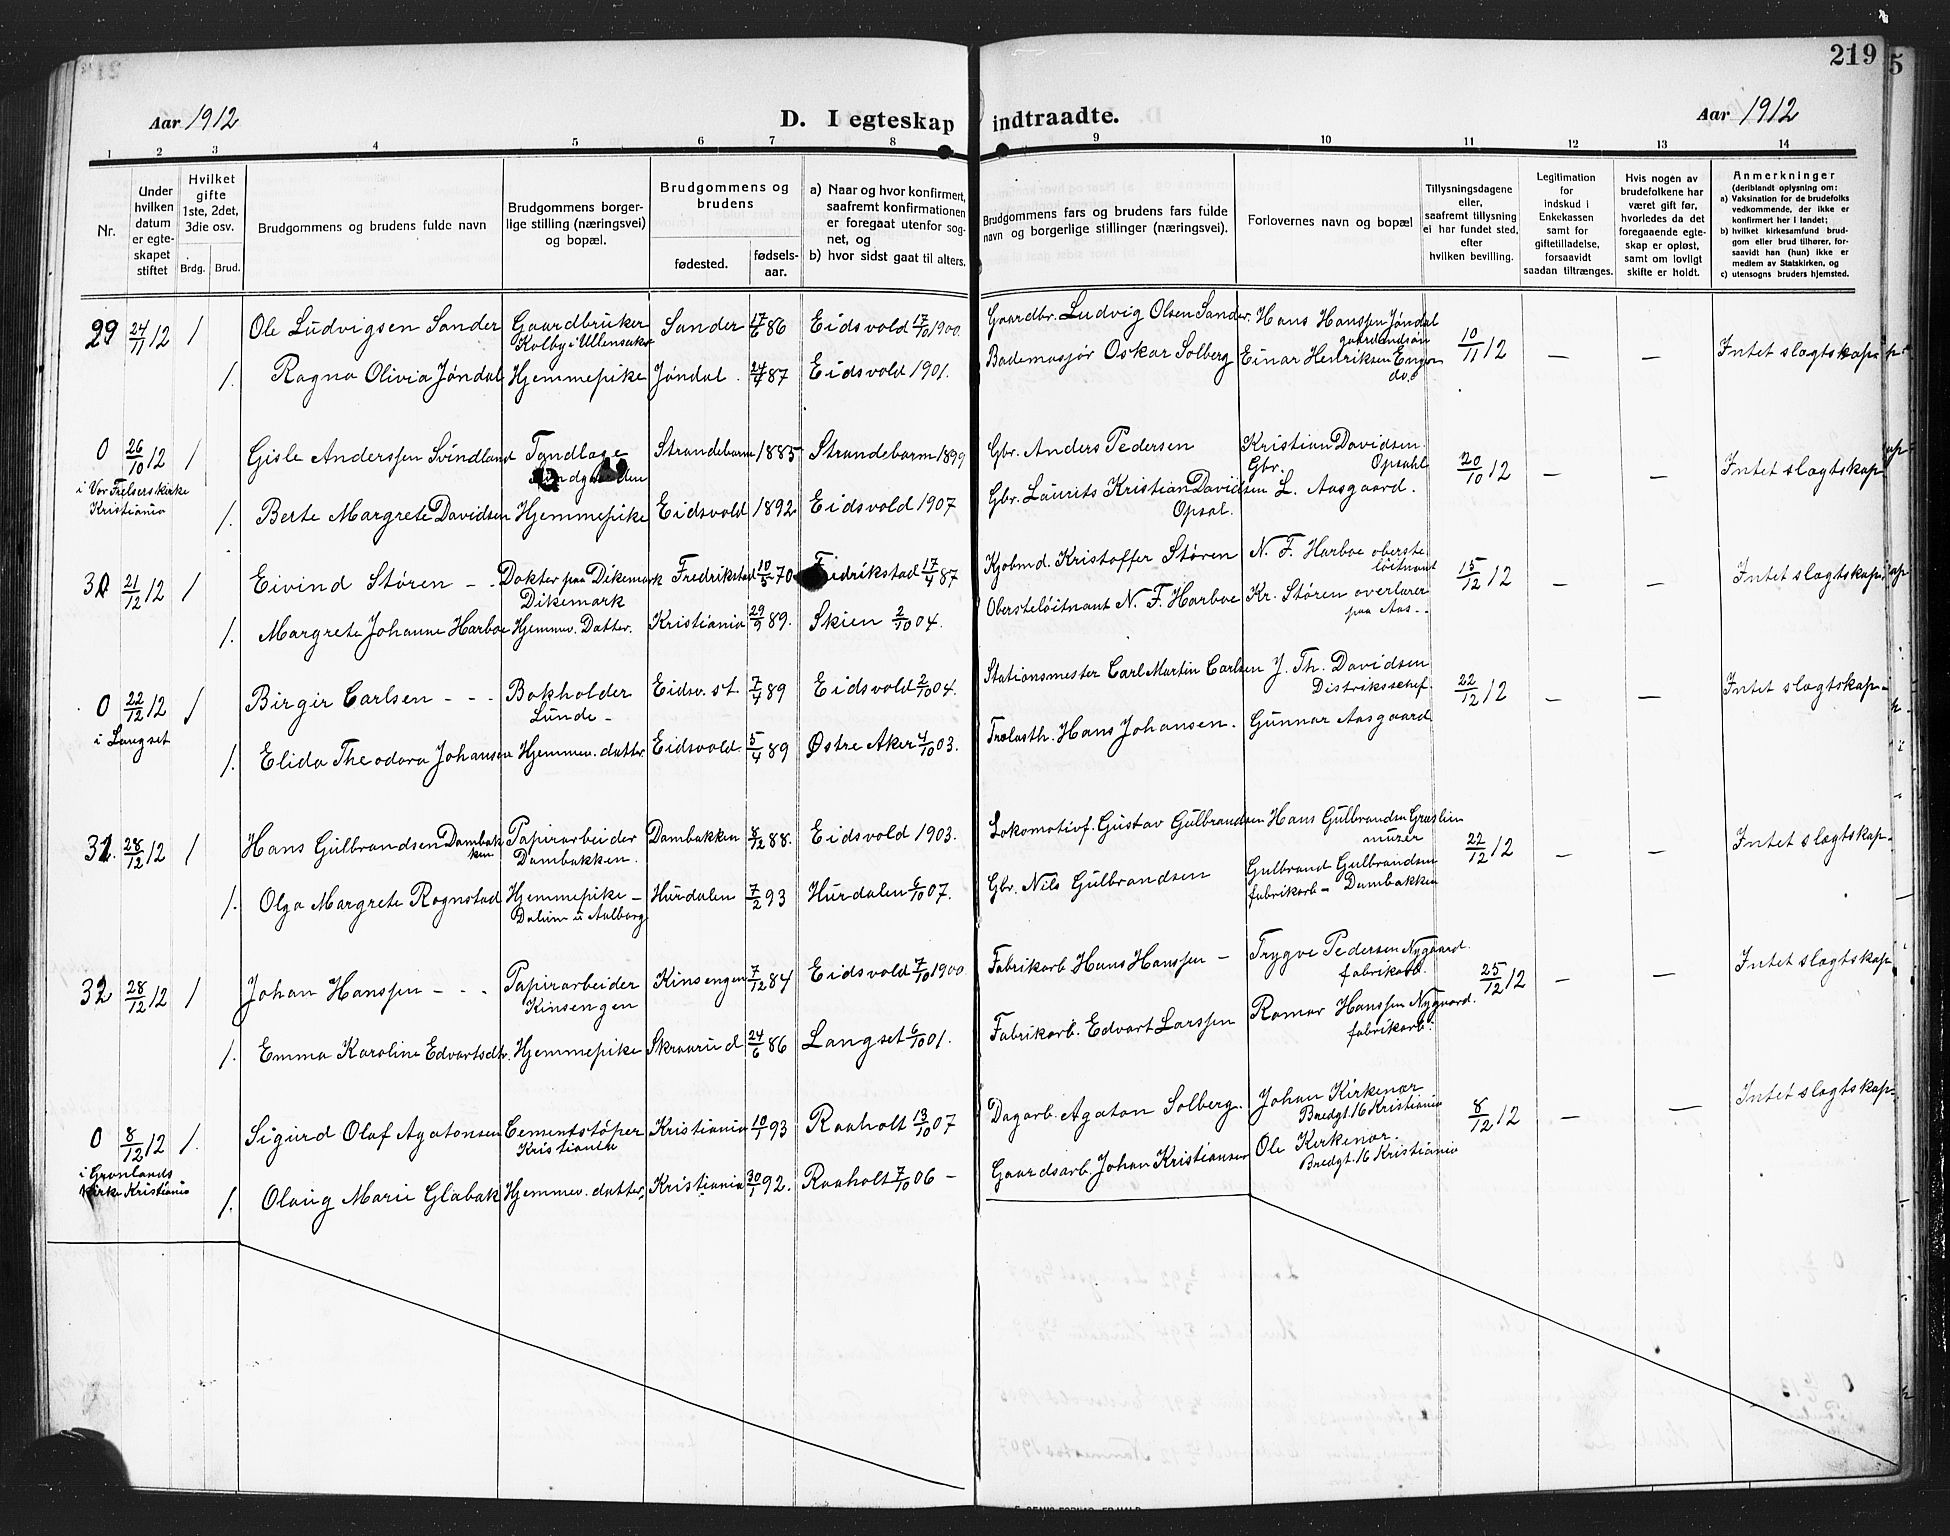 219
5
Aar 1912
D. I egteskap indtraadte.
Aar 1912
1 2 3 4 5 6 7 8 9 10 11 12 13 14
Nr.
Under hvilken datum er egteskapet stiftet
Hvilket gifte 1ste, 2det, 3die osv.
Brdg. Brud.
Brudgommens og brudens fulde navn
Brudgommens borgerlige stilling (næringsvei) og bopæl.
Brudgommens og brudens
fødested.
fødselsaar.
a) Naar og hvor konfirmert, saafremt konfirmationen er foregaat utenfor sognet, og
b) hvor sidst gaat til alters.
Brudgommens fars og brudens fars fulde navn og borgerlige stillinger (næringsvei).
Forlovernes navn og bopæl
Tillysningsdagene eller, saafremt tillysning ei har fundet sted, efter hvilken bevilling.
Legitimation for indskud i Enkekassen samt for giftetilladelse, forsaavidt saadan tiltrænges.
Hvis nogen av brudefolkene har været gift før, hvorledes da det foregaaende egteskap er opløst, samt om lovligt skifte er holdt.
Anmerkninger
(deriblandt oplysning om:
a) Vaksination for de brudefolks vedkommende, der ikke er konfirmert her i landet;
b) hvilket kirkesamfund brudgom eller brud tilhører, forsaavidt han (hun) ikke er medlem av Statskirken, og
c) utensogns bruders hjemsted.
29 24/11 12 1 Ole Ludvigsen Sander Gaardbruker Kolby i Ullensaker Sander 17/6 86 Eidsvold 17/10 1900 Gaardbr. Ludvig Olsen Sander. Hans Hanssen Jøndal gaardmandsøn 10/11 12 — — Intet slagtskap
1. Ragna Olivia Jøndal Hjemmepike Jøndal. 87 Eidsvold 1901. Bademasjør Oskar Solberg Einar Henriksen Engen do.
0 26/10 12 1 Gisle Anderssen Svindland Strandebarm 1885 Strandebarm 1899 Gbr. Anders Pedersen Kristian Davidsen Gbr. Opsahl 20/10 12 — — Intet slagtskap
i Vor Frelsers kirke
Kristiania
1. Berte Margrete Davidsen Hjemmepike Eidsvold 1892 Eidsvold 1907 Gbr. Laurits Kristian Davidsen Opsal. L. Aasgaard.
30 21/12 12 1 Eivind Støren - - Dokter paa Dikemark Dikemark Fredrikstad 10/5 70 Fredrikstad 17/4 87 Kjøbmd. Kristoffer Støren N. F. Harboe obersteløitnant 15/12 12 Intet slagtskap
1. Margrete Johanne Harboe Hjemmev. Datter. Kristiania 29/9 89. Skien 2/10 04. Obersteløitnant N. F. Harboe Kr. Støren overlærer paa Aas - -
0 22/12 12 1 Birgir Carlsen - - - Bokholder Lunde - Eidsv. st. 7/4 89 Eidsvold 2/10 04. Stationsmester Carl Martin Carlsen J. Th. Davidsen Distrikschef. 22/12 12 — — Intet slagtskap -
i Langset
1. Elida Theodora Johansen Hjemmev. datter Eidsvold. 5/4 89 Østre Aker 4/10 03. Trælasth. Hans Johansen. Gunnar Aasgaard
31. 28/12 12 1 Hans Gulbrandsen Dambakken Papirarbeider Dambakken. Dambakken 8/12 88. Eidsvold 1903. Lokomotivf. Gustav Gulbrandsen Hans Gulbrandsen murer 22/12 12 — — Intet slagtskap -
1. Olga Margrete Rognstad Hjemmepike - Hurdalen 7/2 93 Hurdalen 6/10 07. Gbr. Nils Gulbrandsen Gulbrand Gulbrandsen fabrikarb - Dambakken
32 28/12 12 1 Johan Hanssen - - - Papirarbeider Kinsengen Kinsengen 7/12 84 Eidsvold 7/10 1900 Fabrikarb. Hans Hanssen - Trygve Pedersen Nygaard. fabrikarb. 25/12 12 — — Intet slagtskap
1. Emma Karoline Edvartsdtr. Hjemmepike Skraarud 24/6 86 Langset 6/10 01. Fabrikarb. Edvart Larssen Ramar Hanssen Nygaard. fabrikarb.
0 8/12 12 1. Sigurd Olaf Agatonsen Cementstøper Kristiania Kristiania 10/1 93 Raaholt 13/10 07 Dagarb. Agaton Solberg. Johan Kirkenær Bredgt. 16 Kristiania 8/12 12 — — Intet slagtskap -
i Grønlands
kirke Kristiania
1. Olaug Marie Glabak Hjemmev. datter. Kristiania 30/1 92. Raaholt 7/10 06 - Gaardsarb. Johan Kristiansen Ole Kirkenær. Bredgt. 16 Kristiania